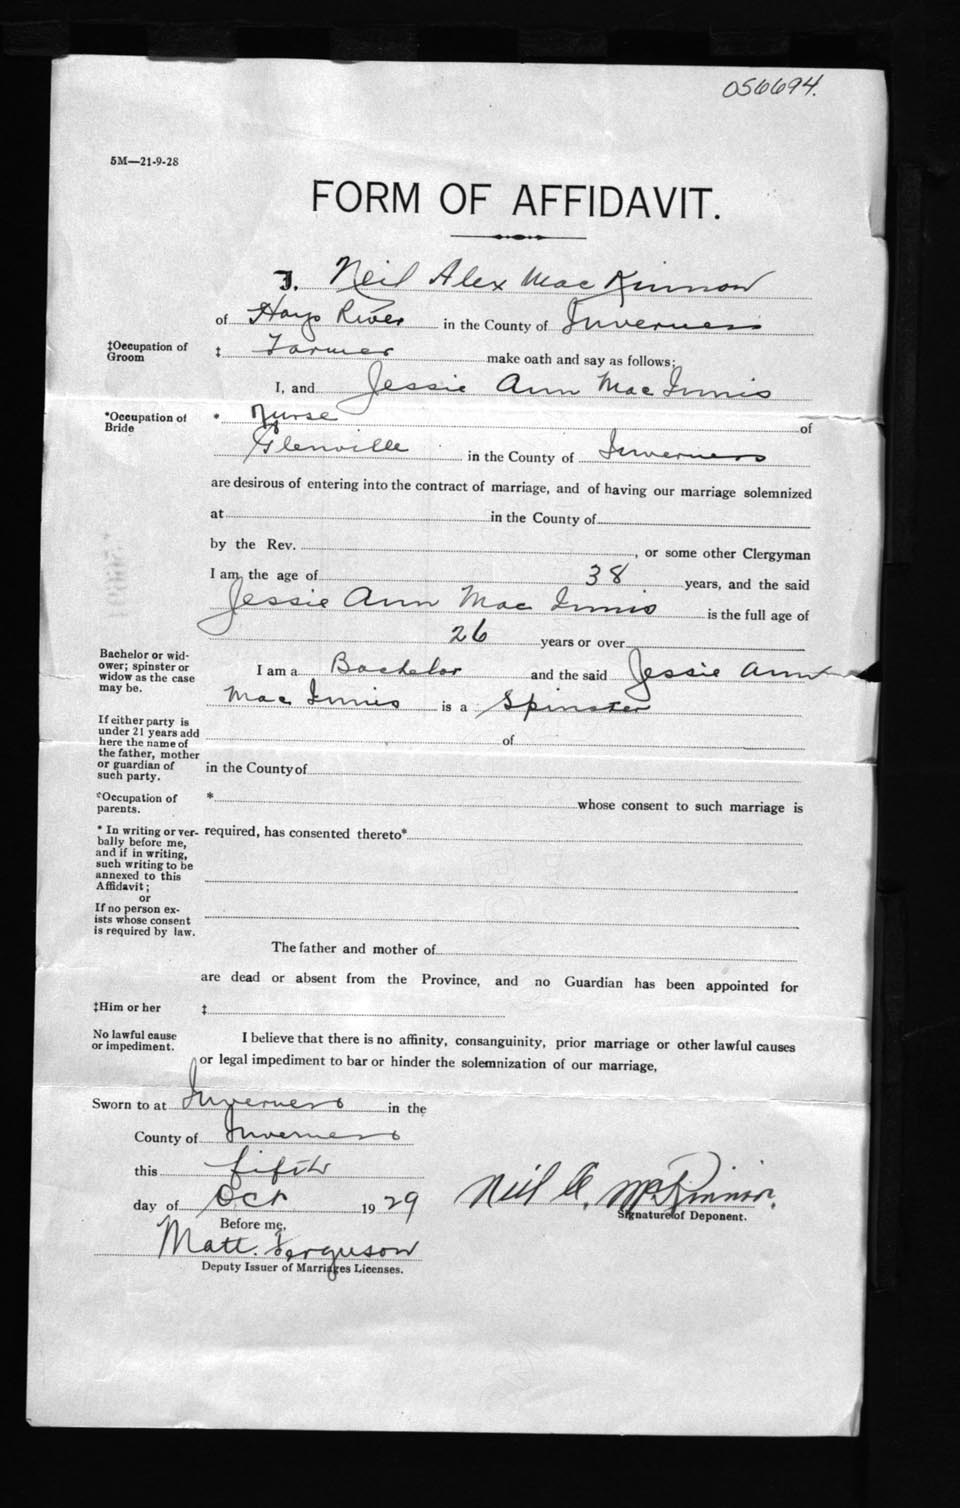 056694.
5M—21-9-28
FORM OF AFFIDAVIT.
I, Neil Alex MacKinnon
of Hays River in the County of Inverness
‡Occupation of Groom ‡ Farmer make oath and say as follows:
I, and Jessie Ann MacInnis
*Occupation of Bride * Nurse of
Glenville in the County of Inverness
are desirous of entering into the contract of marriage, and of having our marriage solemnized
at in the County of
by the Rev. , or some other Clergyman
I am the age of 38 years, and the said
Jessie Ann MacInnis is the full age of
26 years or over
Bachelor or widower; spinster or widow as the case may be.
I am a Bachelor and the said Jessie Ann
MacInnis is a Spinster
If either party is under 21 years add here the name of the father, mother or guardian of such party.
of
in the County of
*Occupation of parents. * whose consent to such marriage is
* In writing or verbally before me, and if in writing, such writing to be annexed to this Affidavit; or If no person exists whose consent is required by law.
required, has consented thereto*
The father and mother of
are dead or absent from the Province, and no Guardian has been appointed for
‡Him or her ‡
No lawful cause or impediment.
I believe that there is no affinity, consanguinity, prior marriage or other lawful causes
or legal impediment to bar or hinder the solemnization of our marriage,
Sworn to at Inverness in the
County of Inverness
this fifth
day of Oct 1929
Neil A. McKinnon.
Signature of Deponent.
Before me,
Matt. Ferguson
Deputy Issuer of Marriages Licenses.